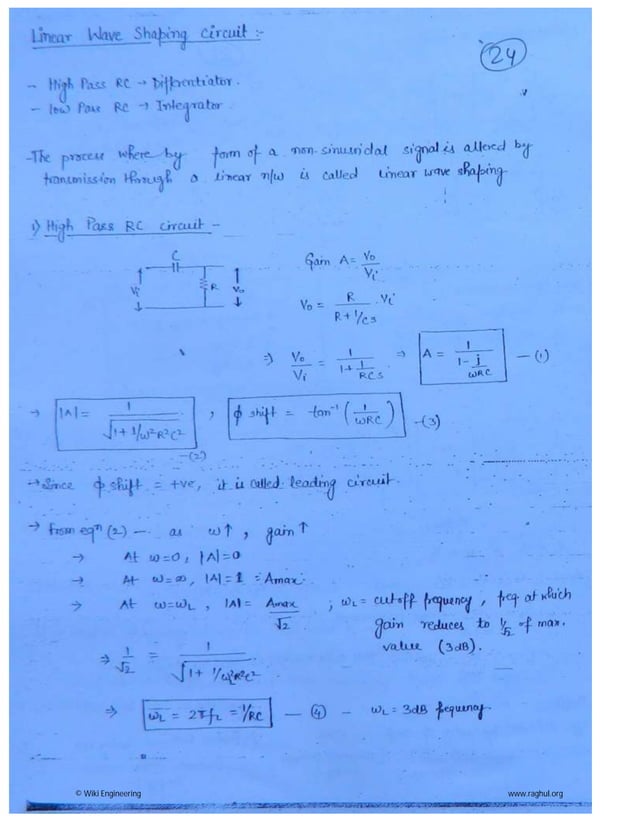 Linear Wave Shaping Circuit :-
24
- High Pass RC → Differentiator.
- low Pass RC → Integrator.
- The process where by form of a non-sinusoidal signal is altered by
transmission through a linear n/w is called linear wave shaping
1) High Pass RC circuit -
C
Vi R Vo
Gain A = Vo/Vi
Vo = R/(R+1/Cs) · Vi
⇒ Vo/Vi = 1/(1+1/RCs) ⇒ A = 1/(1 - j/ωRC) — (1)
→ |A| = 1/√(1+1/ω²R²C²) , ϕ shift = tan⁻¹(1/ωRC) -(3)
-(2)
→ Since ϕ shift = +ve, it is called leading circuit.
→ from eqn (2) — as ω↑, gain↑
→ At ω=0, |A|=0
→ At ω=∞, |A|=1 = Amax.
→ At ω=ωL, |A| = Amax/√2 ; ωL = cutoff frequency, freq at which
gain reduces to 1/√2 of max.
value (3dB).
⇒ 1/√2 = 1/√(1+1/ωL²R²C²)
⇒ ωL = 2πfL = 1/RC — (4) - ωL = 3dB frequency
© Wiki Engineering www.raghul.org